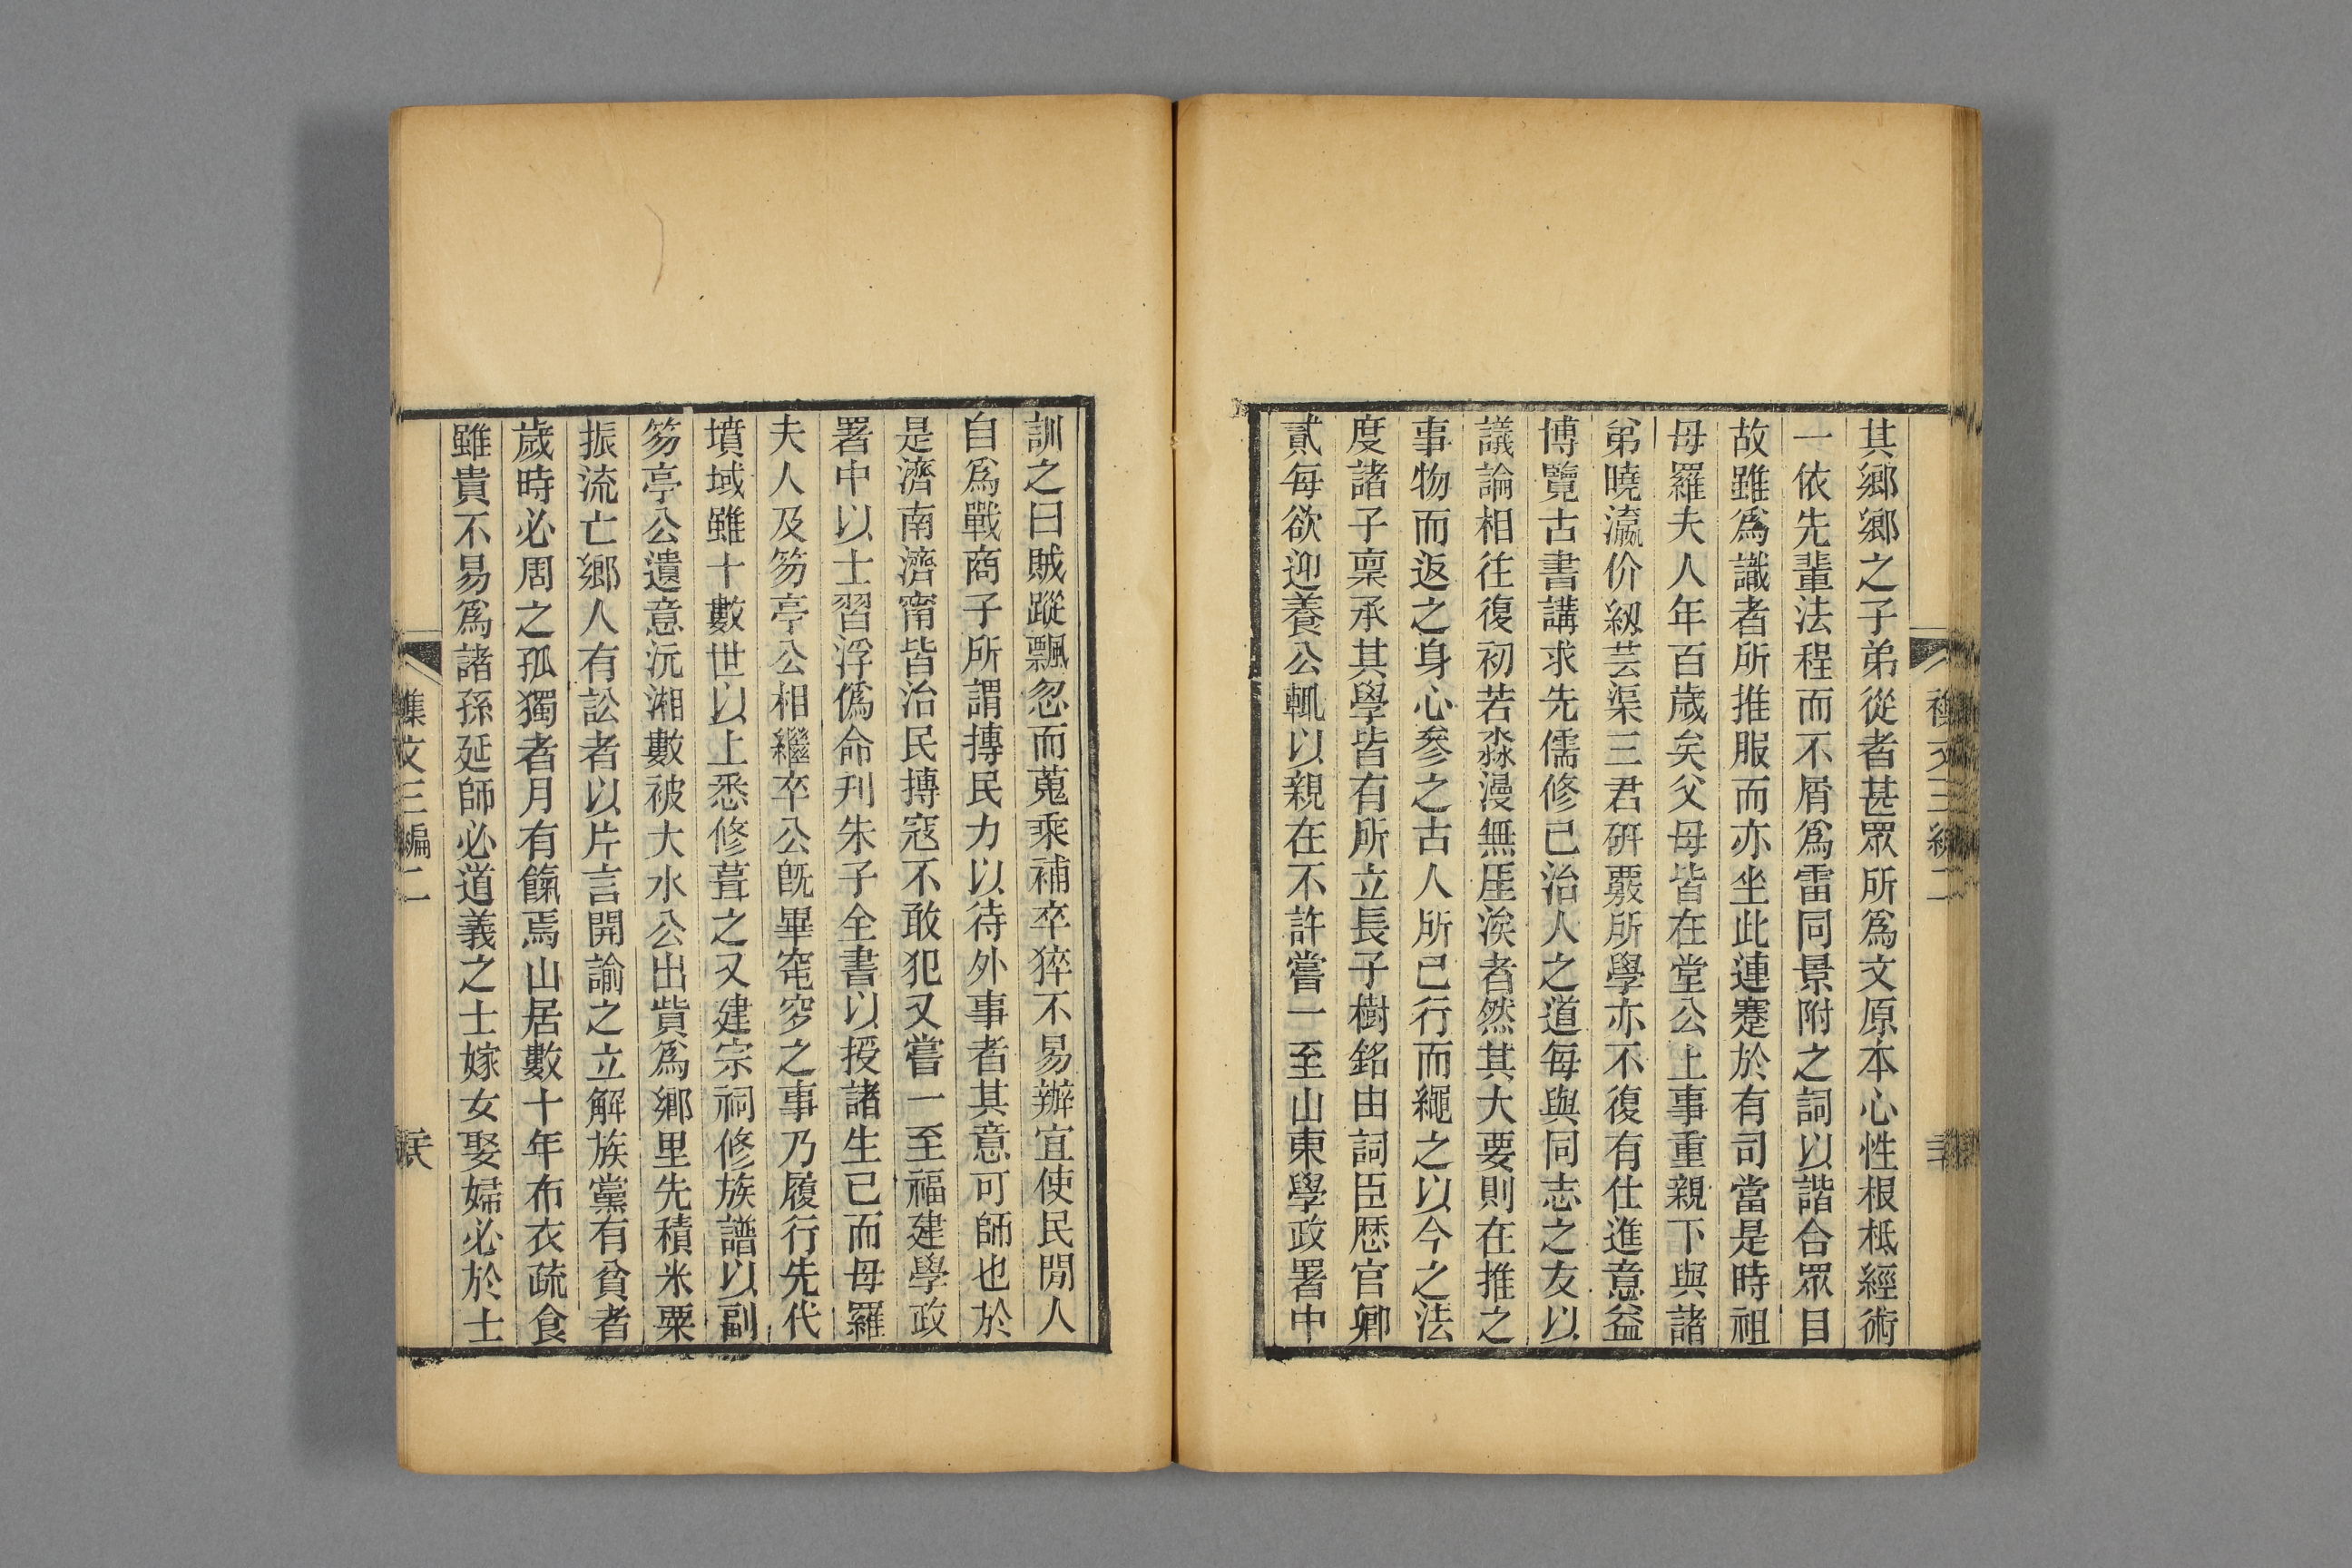 其鄉鄉之子弟從者甚眾所爲文原本心性根柢經術
一依先輩法程而不屑爲雷同景附之詞以諧合眾目
故雖爲識者所推服而亦坐此連蹇於有司當是時祖
母羅夫人年百歲矣父母皆在堂公上事重親下與諸
弟曉瀛价紉芸渠三君硏覈所學亦不復有仕進意益
博覽古書講求先儒修己治人之道每與同志之友以
議論相往復初若淼漫無厓涘者然其大要則在推之
事物而返之身心參之古人所已行而繩之以今之法
度諸子稟承其學皆有所立長子樹銘由詞臣歷官卿
貳每欲迎養公輒以親在不許嘗一至山東學政署中
訓之曰賊蹤飄忽而蒐乘補卒猝不易辦宜使民閒人
自爲戰商子所謂摶民力以待外事者其意可師也於
是濟南濟甯皆治民摶寇不敢犯又嘗一至福建學政
署中以士習浮僞命刋朱子全書以授諸生已而母羅
夫人及笏亭公相繼卒公旣畢窀穸之事乃履行先代
墳域雖十數世以上悉修葺之又建宗祠修族譜以副
笏亭公遺意沅湘數被大水公出貲爲鄉里先積米粟
振流亡鄉人有訟者以片言開諭之立解族黨有貧者
歲時必周之孤獨者月有餼焉山居數十年布衣疏食
雖貴不易爲諸孫延師必道義之士嫁女娶婦必於士
文三編二